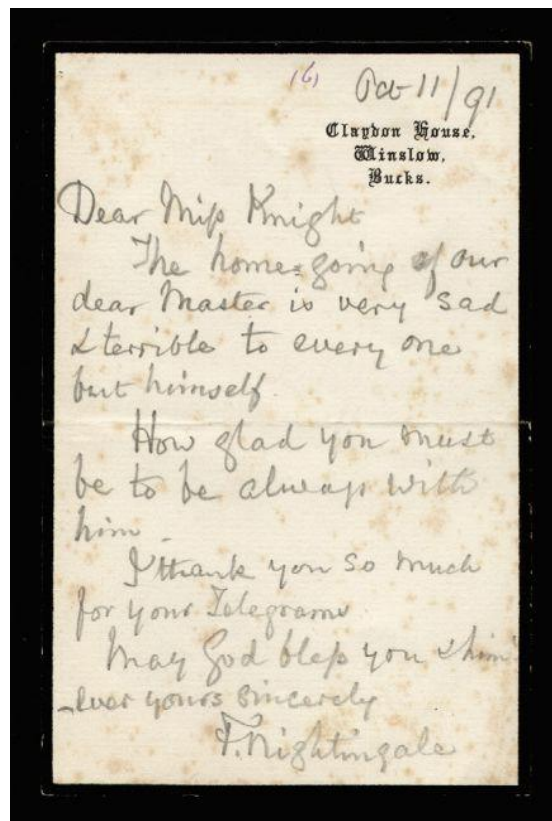 (6)
Oct 11/91
Claydon House,
Winslow,
Bucks.
Dear Miss Knight
The home-going of our
dear Master is very sad
& terrible to every one
but himself
How glad you must
be to be always with
him -
I thank you so much
for your Telegrams
May God bless you & him
ever yours sincerely
F. Nightingale